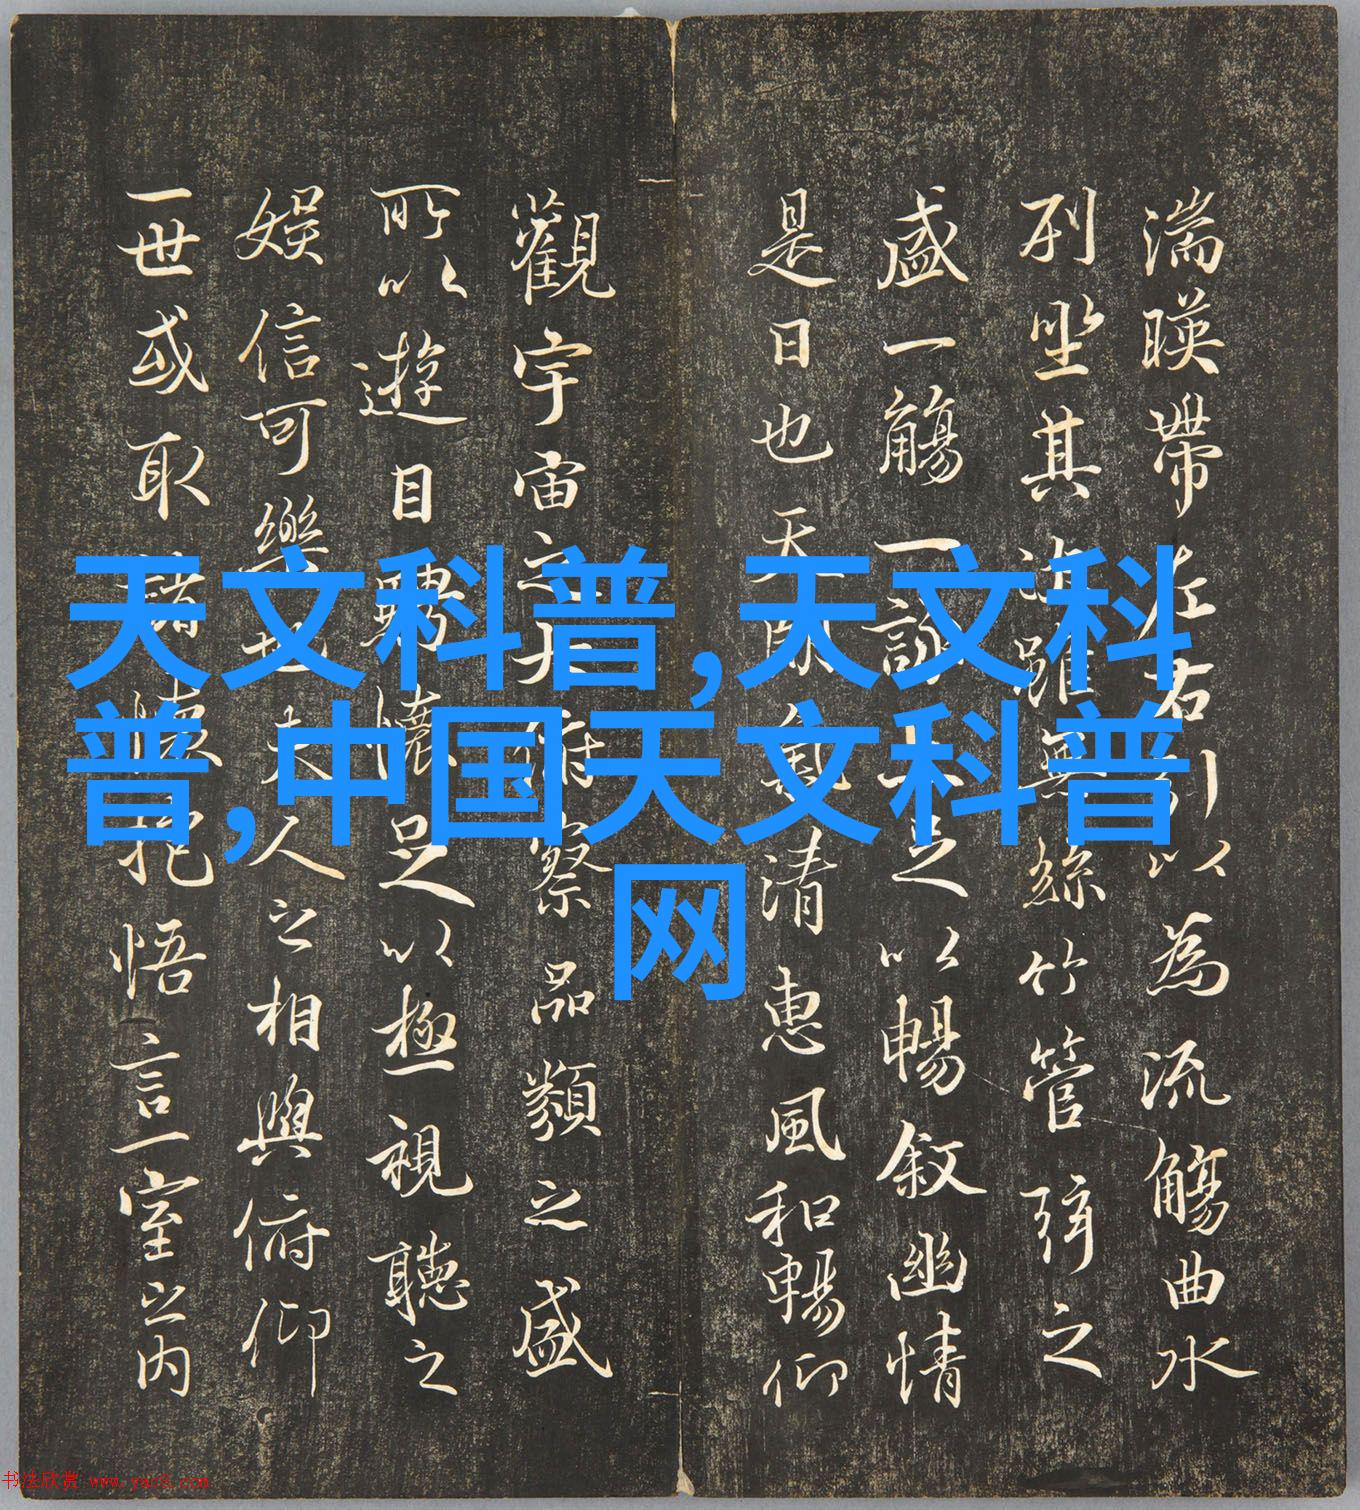 湍暎帶左右引以為流觴曲水
列坐其次雖無絲竹管弦之
盛一觴一詠亦足以暢敘幽情
是日也天朗氣清惠風和暢仰
觀宇宙之大俯察品類之盛
所以遊目騁懷足以極視聽之
娛信可樂也夫人之相與俯仰
一世或取諸懷抱悟言一室之内
天文科普,天文科
普,中国天文科普
网
书法欣赏 www.yac8.com